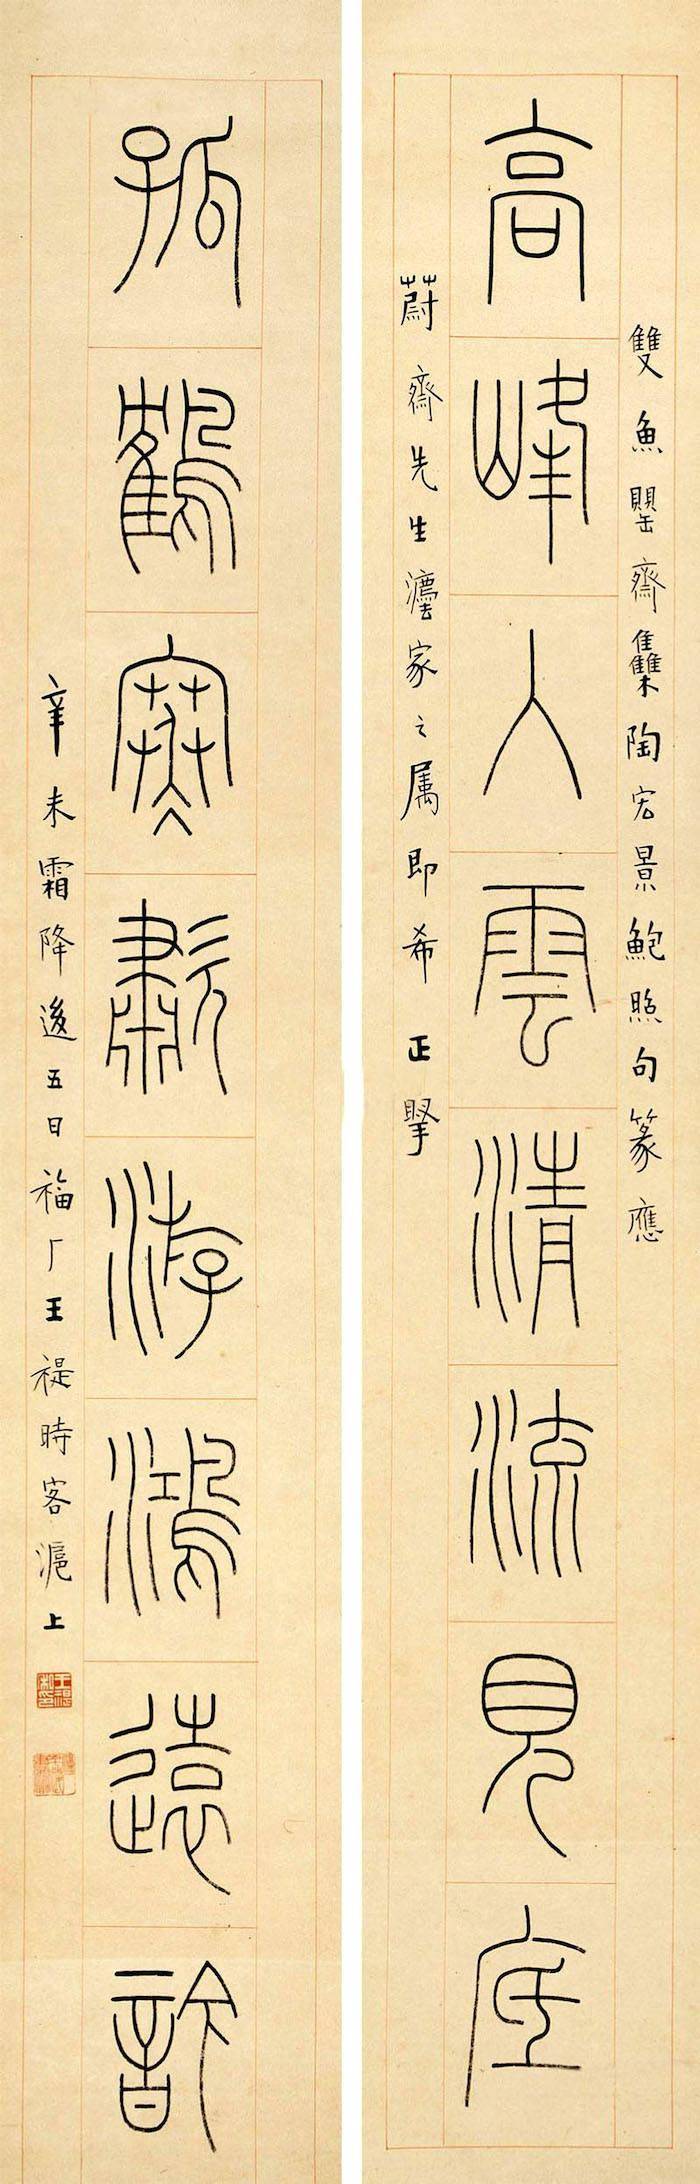 高峰入雲清流見底
雙魚罌齋雧陶宏景鮑照句篆應
蔚齋先生灋家之属即希正掔
孤鶴寒歗游鴻遠䪩
辛未霜降後五日福厂王禔時客滬上
王禔私印